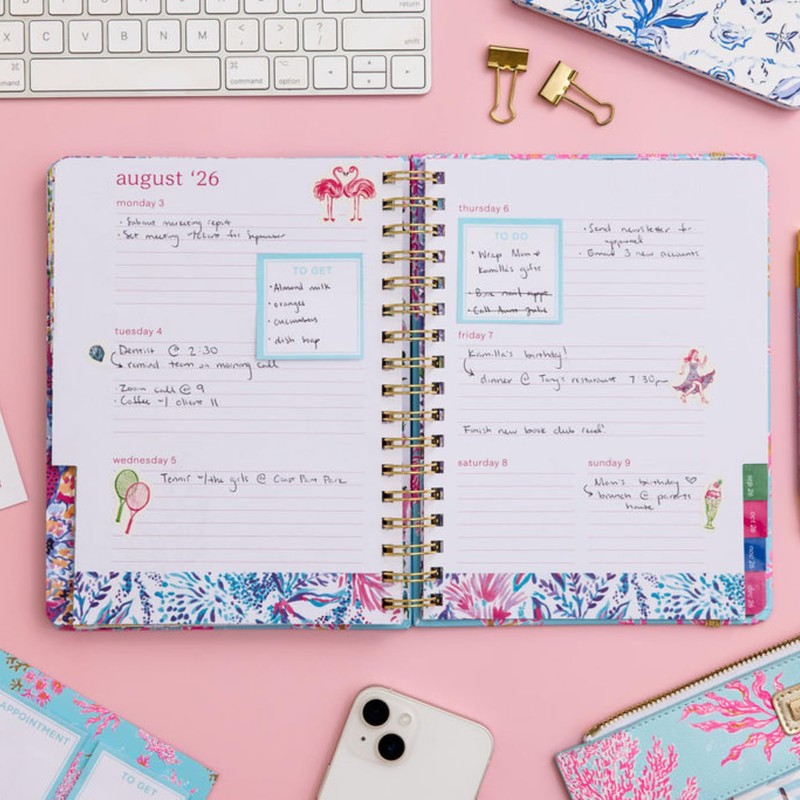 return
X
C
V
B
N
M
<
,
>
.
?
/
shift
command
command
option
august '26
monday 3
• Submit marketing report
• Set meeting for September
TO GET
• Almond milk
• oranges
• cucumbers
• dish soap
tuesday 4
Dentist @ 2:30
remind team on morning call
• Zoom call @ 9
• Coffee w/ client 11
wednesday 5
Tennis w/the girls @ Park
thursday 6
TO DO
• Wrap Mom +
Kamilla's gifts
• Call Aunt Julie
• Send newsletter for
approval
• Email 3 new accounts
friday 7
Kamilla's birthday!
dinner @ Tony's restaurant 7:30pm
Finish new book club read!
saturday 8
sunday 9
Mom's birthday ♡
brunch @ parents
house
sep 26
oct 26
nov 26
dec 26
APPOINTMENT
TO GET